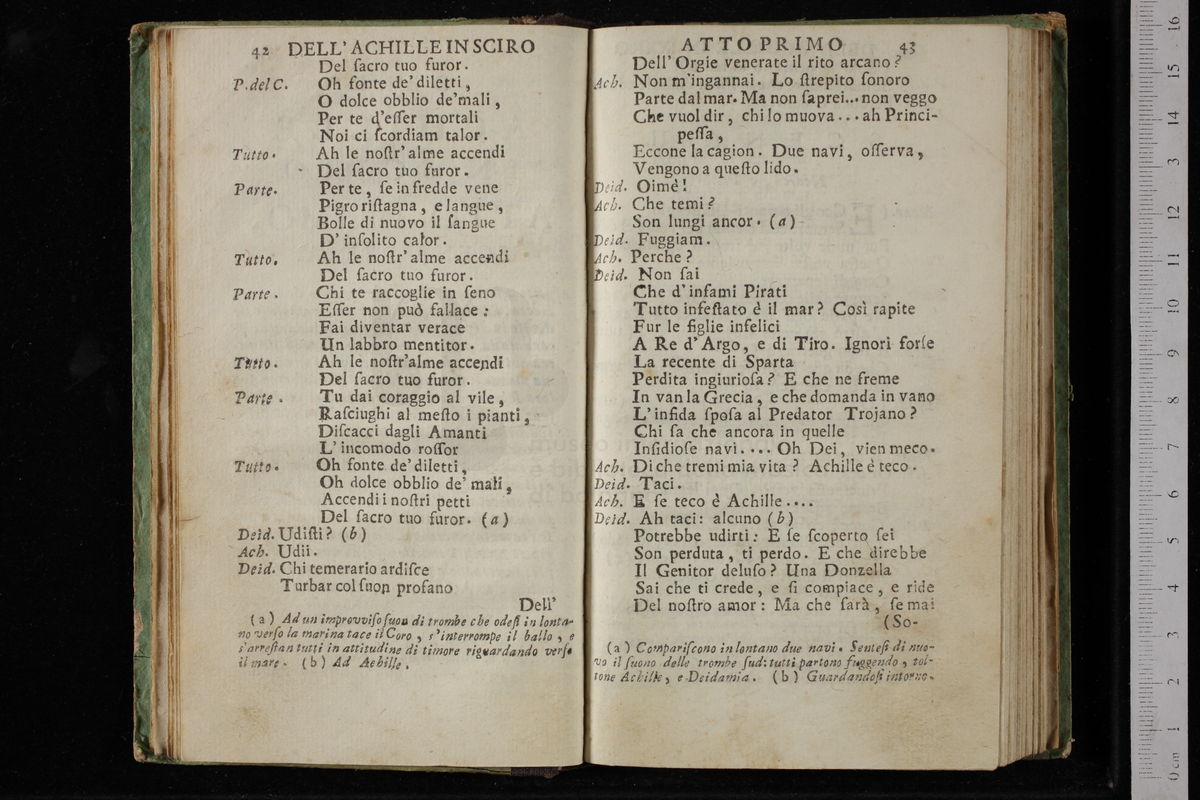 42 DELL' ACHILLE IN SCIRO
Del ſacro tuo furor.
P. del C. Oh fonte de' diletti,
O dolce obblio de' mali,
Per te d'eſſer mortali
Noi ci ſcordiam talor.
Tutto. Ah le noſtr' alme accendi
Del ſacro tuo furor.
Parte. Per te, ſe in fredde vene
Pigro riſtagna, e langue,
Bolle di nuovo il ſangue
D' inſolito calor.
Tutto. Ah le noſtr' alme accendi
Del ſacro tuo furor.
Parte. Chi te raccoglie in ſeno
Eſſer non può fallace:
Fai diventar verace
Un labbro mentitor.
Tutto. Ah le noſtr'alme accendi
Del ſacro tuo furor.
Parte. Tu dai coraggio al vile,
Raſciughi al meſto i pianti,
Diſcacci dagli Amanti
L' incomodo roſſor
Tutto. Oh fonte de' diletti,
Oh dolce obblio de' mali,
Accendi i noſtri petti
Del ſacro tuo furor. (a)
Deid. Udiſti? (b)
Ach. Udii.
Deid. Chi temerario ardiſce
Turbar col ſuon profano
Dell'
(a) Ad un improvviſo ſuon di trombe che odeſi in lonta-
no verſo la marina tace il Coro, s'interrompe il ballo, e
s'arreſtan tutti in attitudine di timore riguardando verſo
il mare. (b) Ad Achille.
ATTO PRIMO 43
Dell' Orgie venerate il rito arcano?
Ach. Non m'ingannai. Lo ſtrepito ſonoro
Parte dal mar. Ma non ſaprei... non veggo
Che vuol dir, chi lo muova... ah Princi-
peſſa,
Eccone la cagion. Due navi, oſſerva,
Vengono a queſto lido.
Deid. Oimè!
Ach. Che temi?
Son lungi ancor. (a)
Deid. Fuggiam.
Ach. Perche?
Deid. Non ſai
Che d' infami Pirati
Tutto infeſtato è il mar? Così rapite
Fur le figlie infelici
A Re d' Argo, e di Tiro. Ignori forſe
La recente di Sparta
Perdita ingiurioſa? E che ne freme
In van la Grecia, e che domanda in vano
L' infida ſpoſa al Predator Trojano?
Chi ſa che ancora in quelle
Inſidioſe navi.... Oh Dei, vien meco.
Ach. Di che tremi mia vita? Achille è teco.
Deid. Taci.
Ach. E ſe teco è Achille....
Deid. Ah taci: alcuno (b)
Potrebbe udirti: E ſe ſcoperto ſei
Son perduta, ti perdo. E che direbbe
Il Genitor deluſo? Una Donzella
Sai che ti crede, e ſi compiace, e ride
Del noſtro amor: Ma che ſarà, ſe mai
(So-
(a) Compariſcono in lontano due navi. Senteſi di nuo-
vo il ſuono delle trombe ſud: tutti partono fuggendo, tol-
tone Achille, e Deidamia. (b) Guardandoſi intorno.